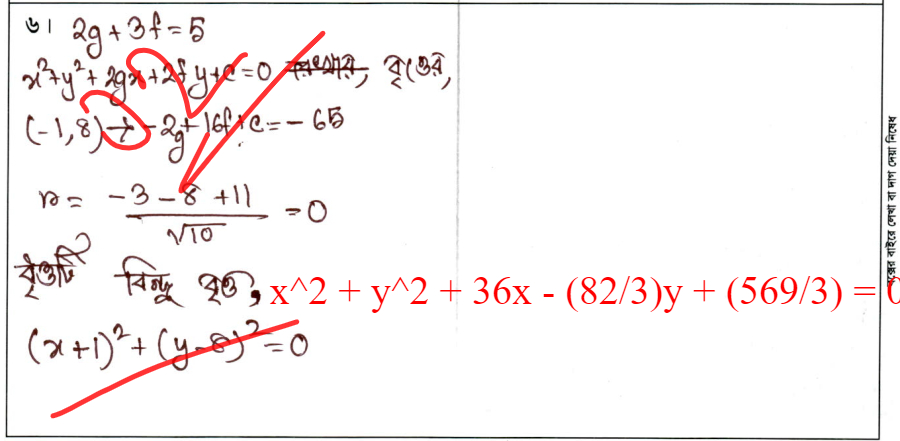 ৬। 2g + 3f = 5
x²+y²+2gx+2fy+c=0 বৃত্তের,
(-1, 8) → -2g+16f+c = -65
r = (-3 - 8 + 11)/√10 = 0
বৃত্তটি বিন্দু বৃত্ত, x^2 + y^2 + 36x - (82/3)y + (569/3) = 0
(x+1)² + (y-8)² = 0
বক্সের বাইরে লেখা বা দাগ দেয়া নিষেধ